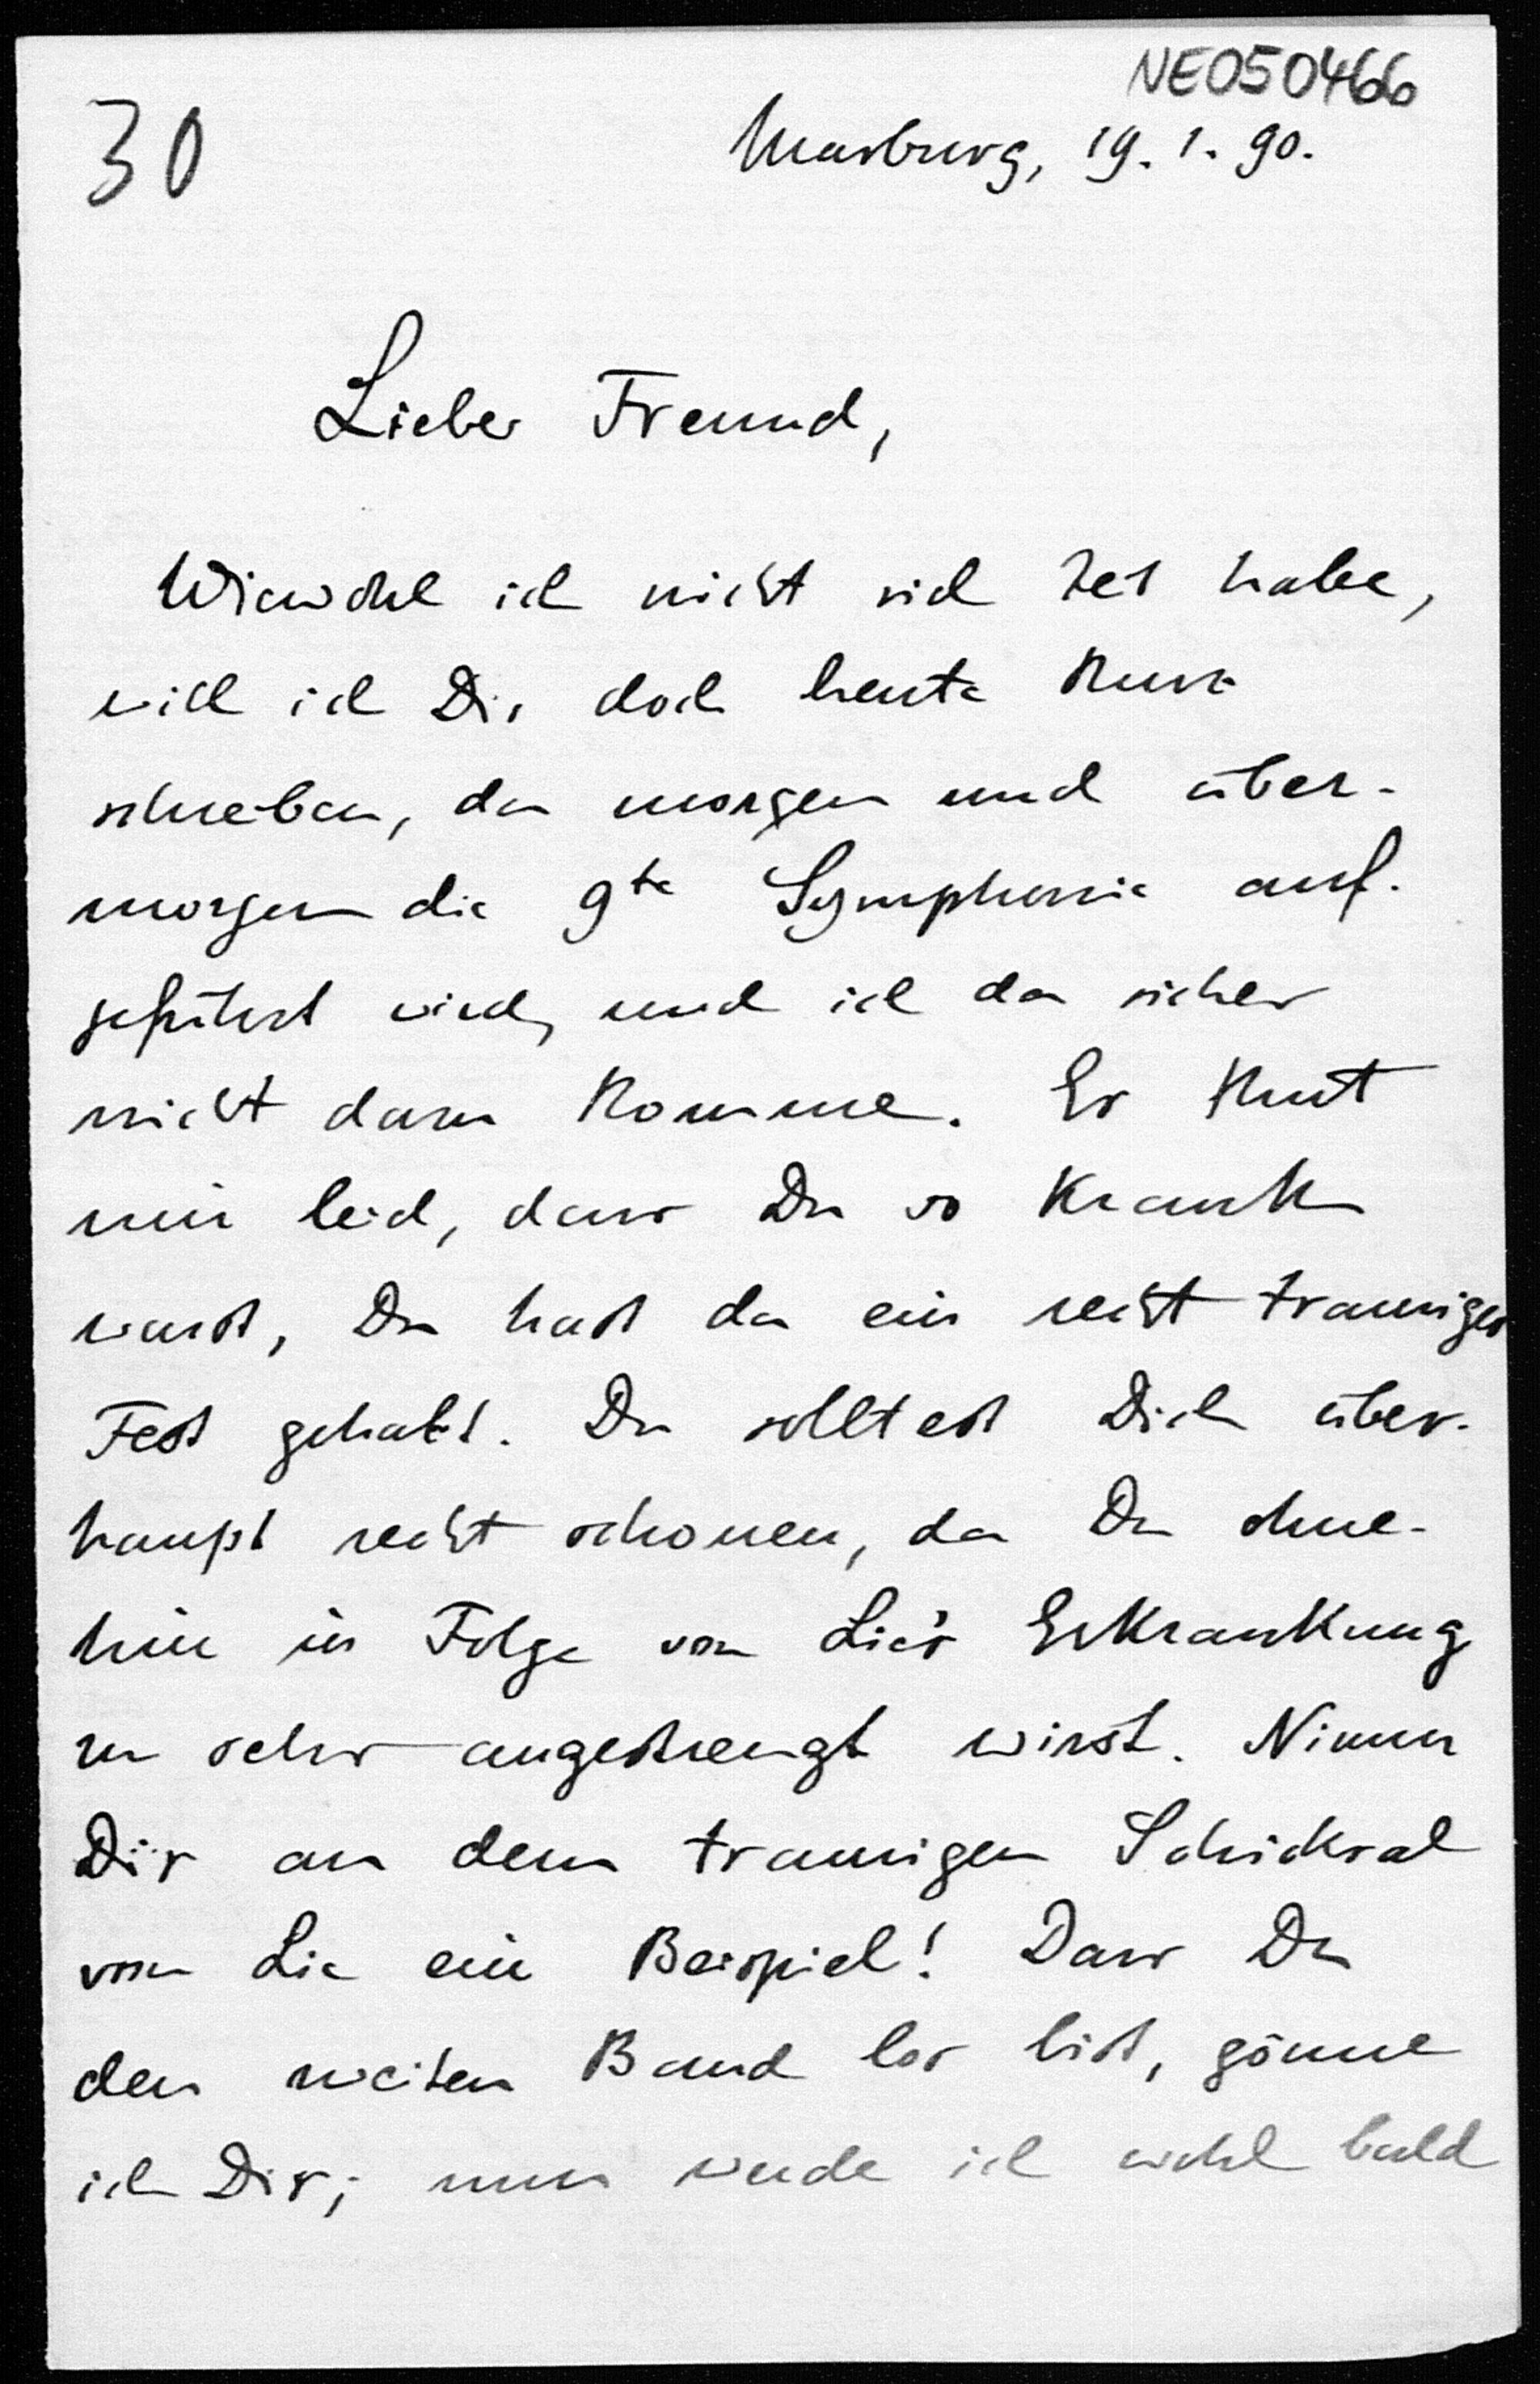 NE050466
30
Marburg, 19. 1. 90.
Lieber Freund,
Wiewohl ich nicht viel Zeit habe,
will ich Dir doch heute kurz
schreiben, da morgen und über-
morgen die 9te Symphonie auf-
geführt wird, und ich da sicher
nicht dazu komme. Es thut
mir leid, dass Du so krank
warst, Du hast da ein recht trauriges
Fest gehabt. Du solltest Dich über-
haupt recht schonen, da Du ohne-
hin in Folge von Lie's Erkrankung
zu sehr angestrengt wirst. Nimm
Dir an dem traurigen Schicksal
von Lie ein Beispiel! Dass Du
den zweiten Band los bist, gönne
ich Dir; nun werde ich wohl bald